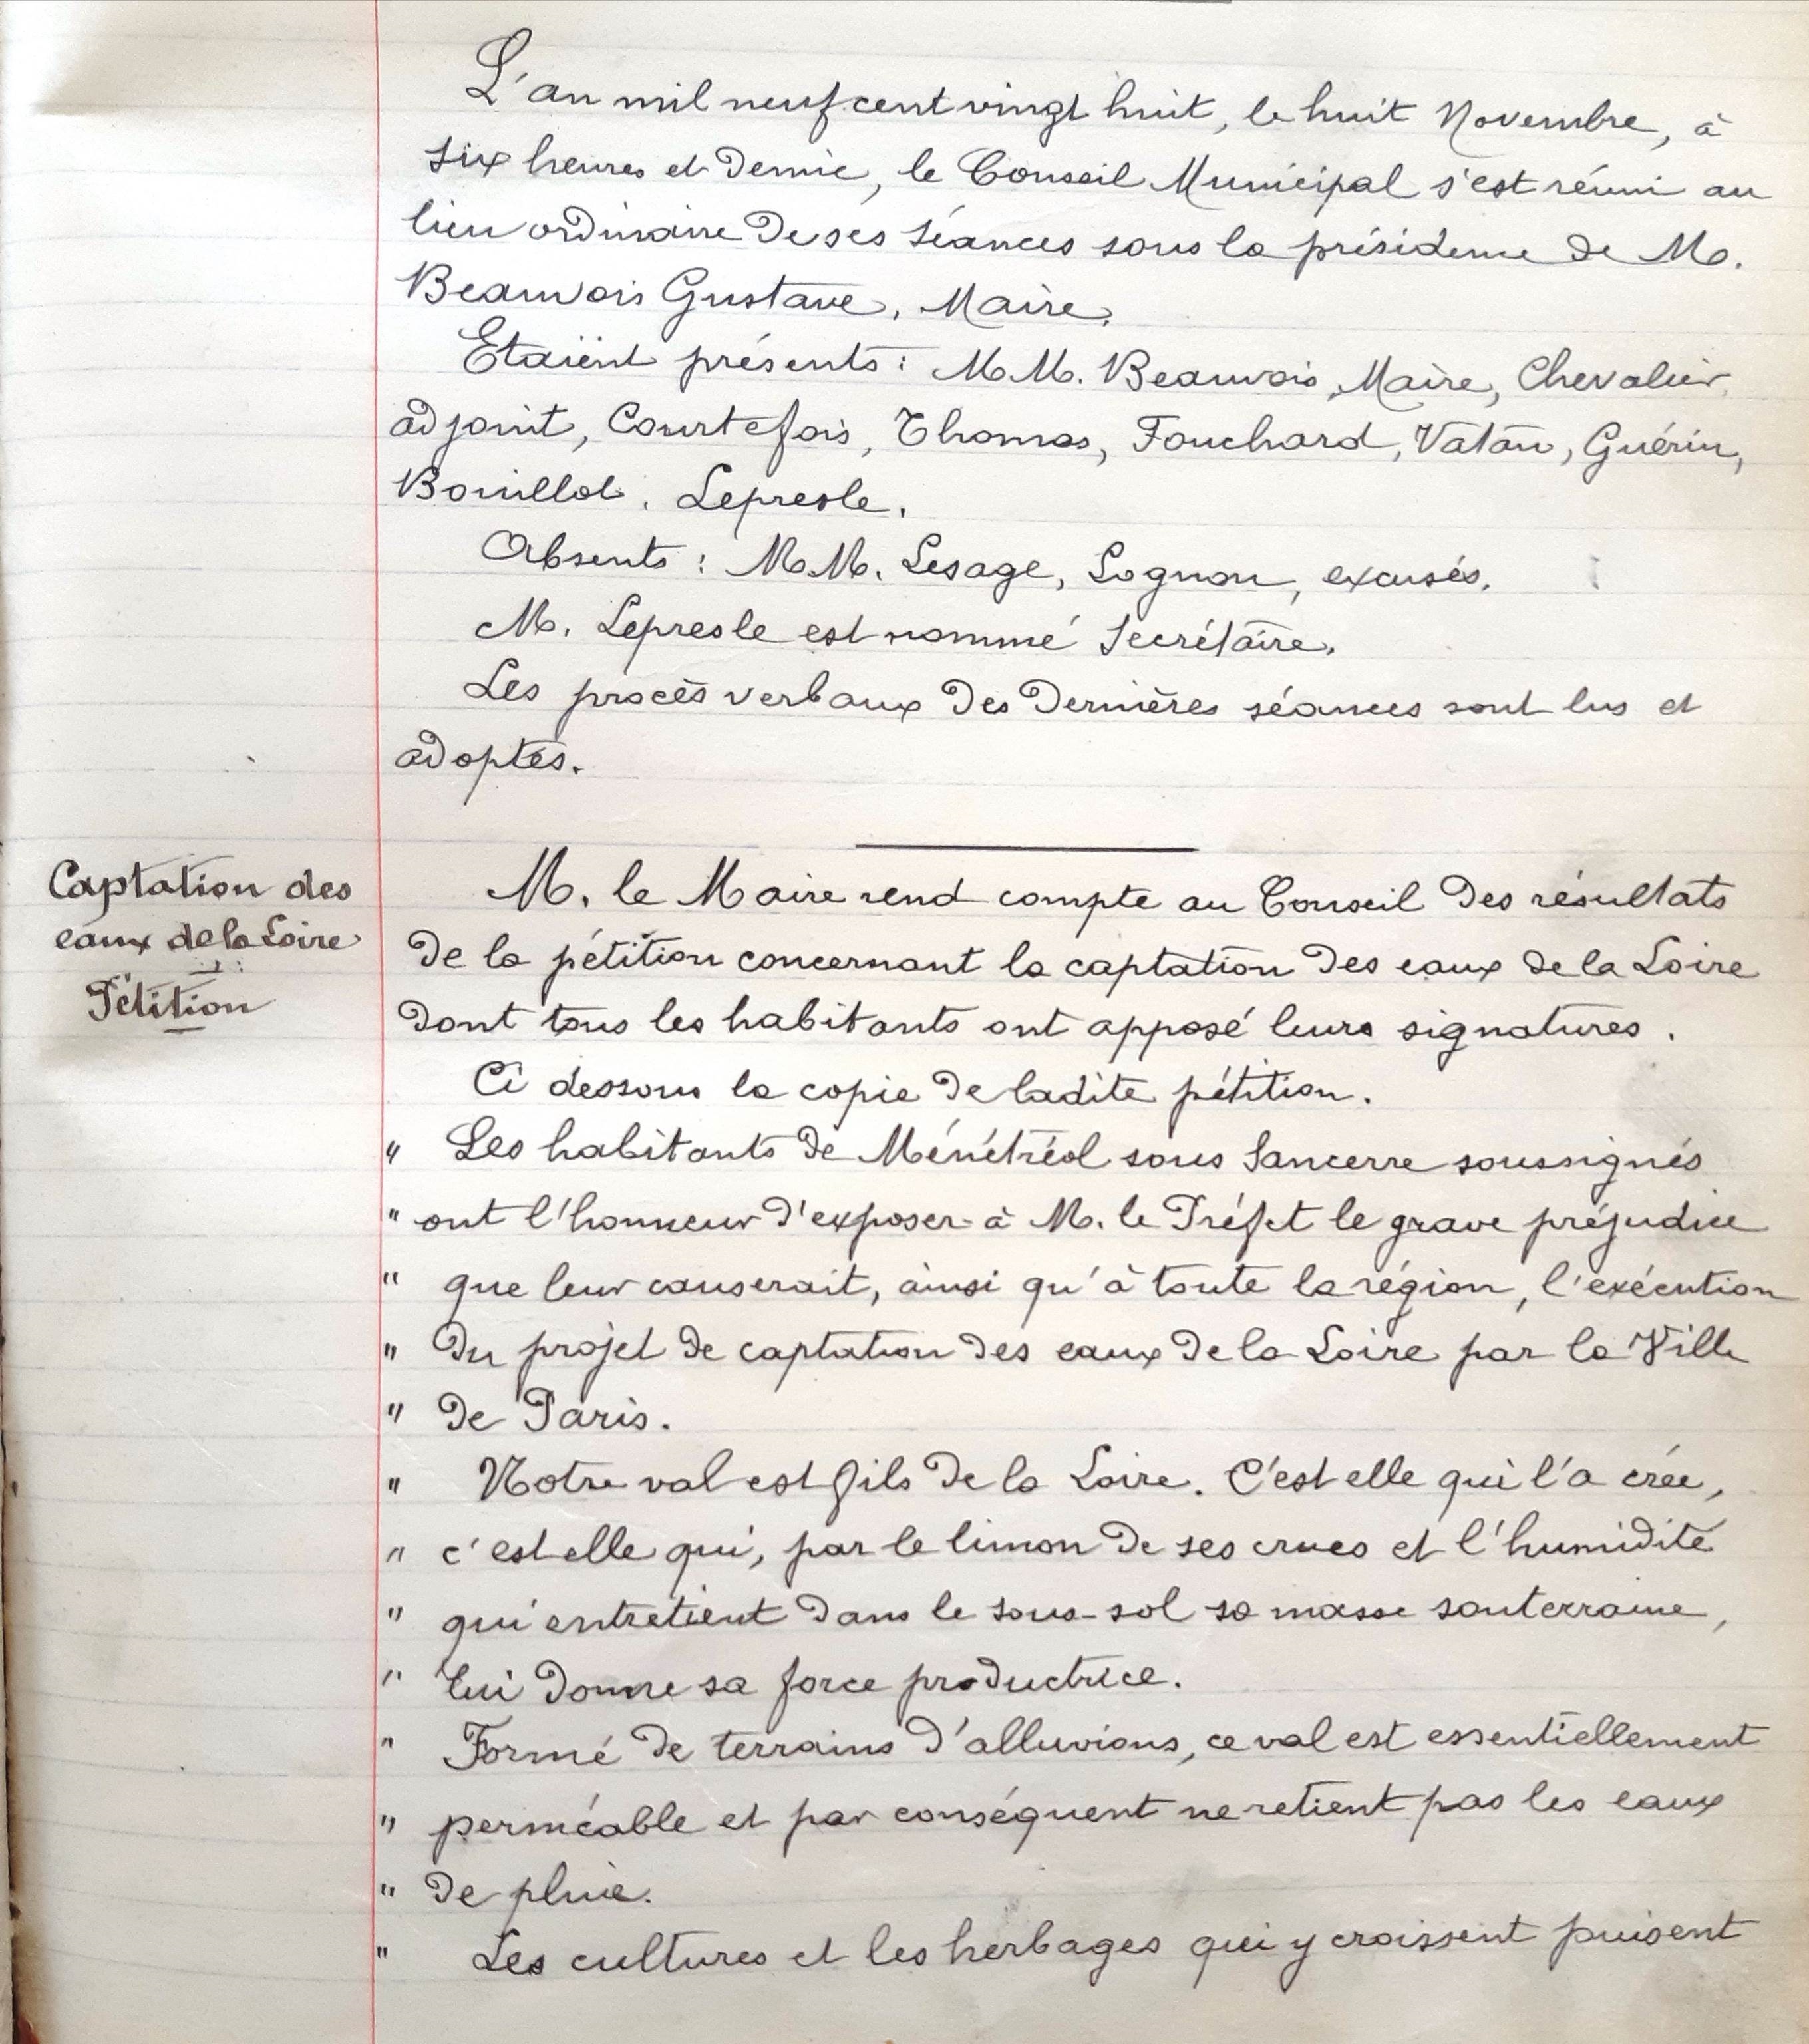 L'an mil neuf cent vingt huit, le huit Novembre, à
six heures et demie, le Conseil Municipal s'est réuni au
lieu ordinaire de ses séances sous la présidence de M.
Beauvois Gustave, Maire.
Etaient présents : MM. Beauvois, Maire, Chevalier,
adjoint, Courtefois, Thomas, Fouchard, Vatan, Guérin,
Bouillot, Lepresle.
Absents : MM. Lesage, Lognon, excusés.
M. Lepresle est nommé secrétaire.
Les procès verbaux des dernières séances sont lus et
adoptés.
Captation des
eaux de la Loire
Pétition
M. le Maire rend compte au Conseil des résultats
de la pétition concernant la captation des eaux de la Loire
dont tous les habitants ont apposé leurs signatures.
Ci dessous la copie de ladite pétition.
" Les habitants de Ménétréol sous Sancerre soussignés
" ont l'honneur d'exposer à M. le Préfet le grave préjudice
" que leur causerait, ainsi qu'à toute la région, l'exécution
" du projet de captation des eaux de la Loire par la Ville
" de Paris.
" Notre val est fils de la Loire. C'est elle qui l'a crée,
" c'est elle qui, par le limon de ses crues et l'humidité
" qui entretient dans le sous-sol sa masse souterraine,
" lui donne sa force productrice.
" Formé de terrains d'alluvions, ce val est essentiellement
" perméable et par conséquent ne retient pas les eaux
" de pluie.
" Les cultures et les herbages qui y croissent puisent